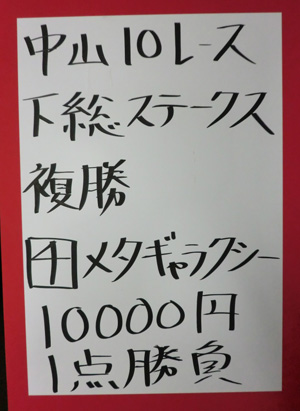 中山10レース
下総ステークス
複勝
4メタギャラクシー
10000円
1点勝負